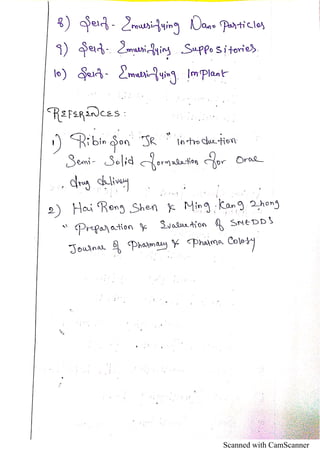 8) Self- Emulsifying Nano Particles
9) Self- Emulsifying Suppositories.
10) Self- Emulsifying Implant
REFERENCES:
1) Robinson JR " Introduction
Semi- Solid formulation for Oral
drug delivery
2) Hai Rong Shen & Ming Kang Zhong
" Preparation & Evaluation of SMEDDS
Journal of Pharmacy & Pharma Cology
Scanned with CamScanner